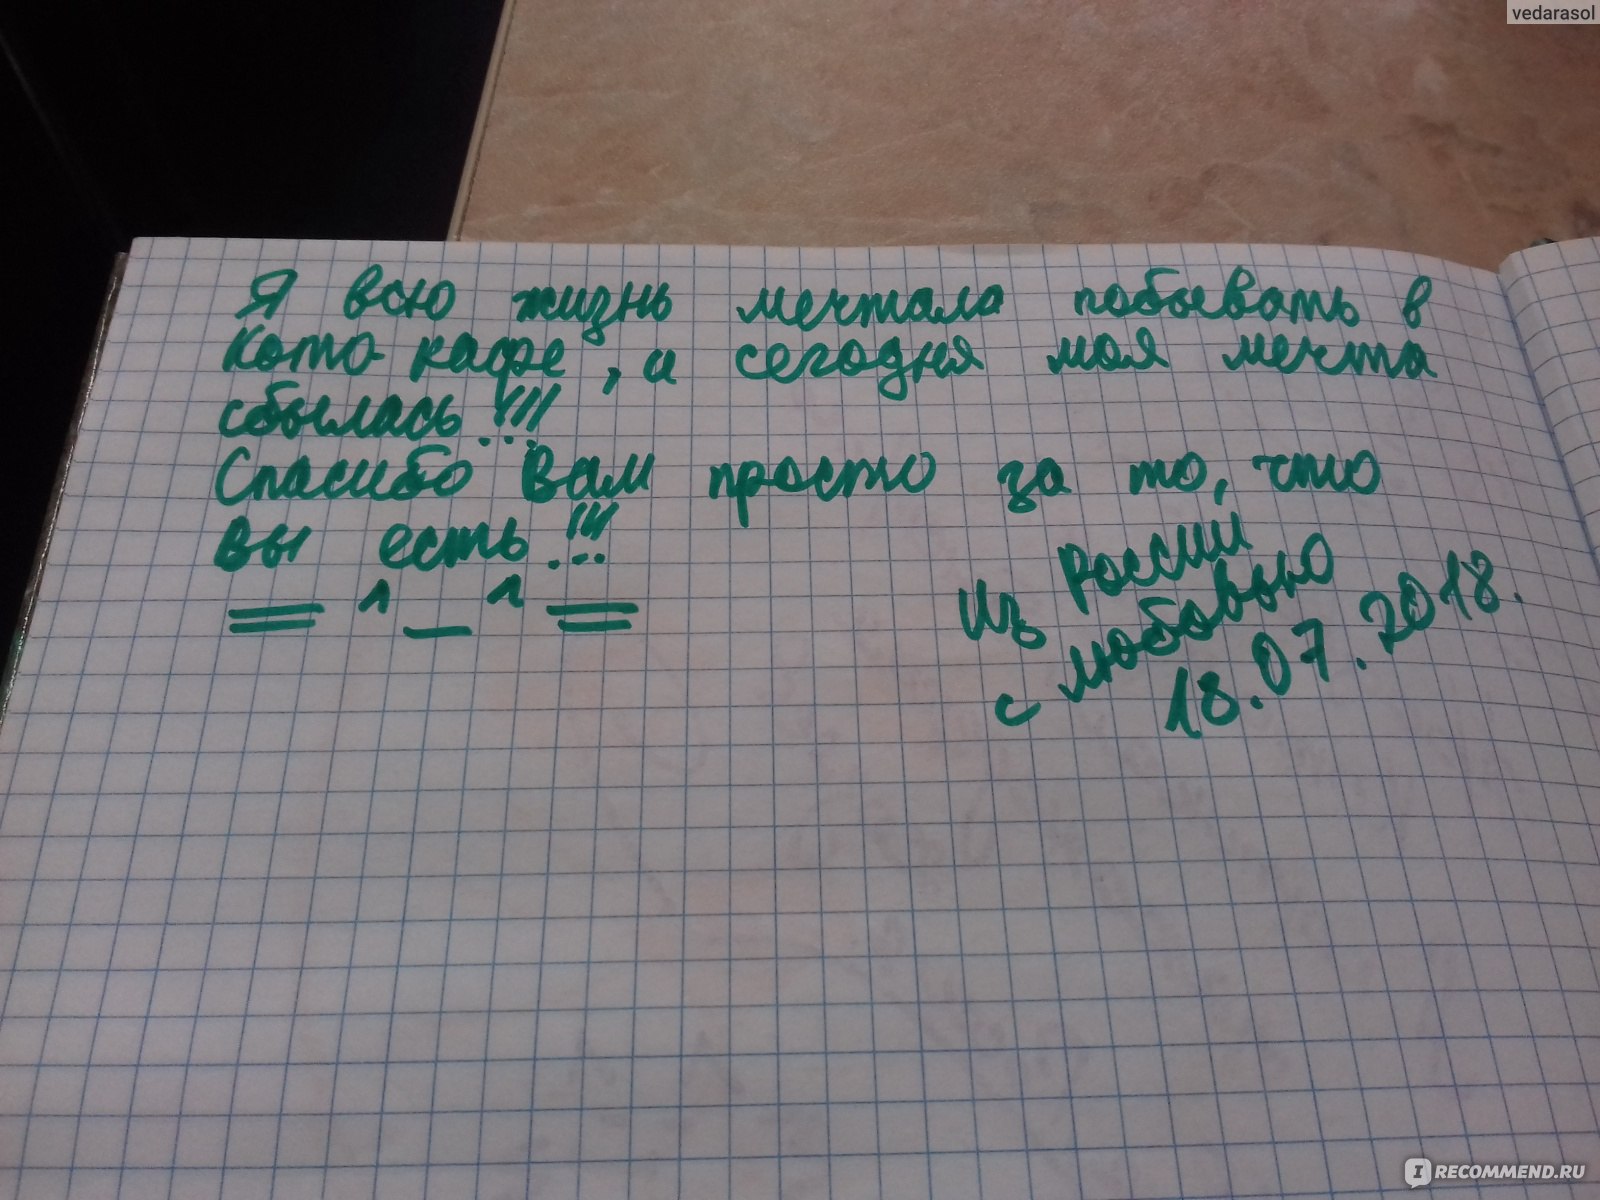 vedarasol
Я всю жизнь мечтала побывать в
кото-кафе, и сегодня моя мечта
сбылась!!!
Спасибо Вам просто за то, что
вы есть!!!
= ^_^ =
Из России
с любовью
18.07.2018.
IRECOMMEND.RU